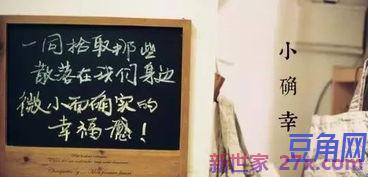 一同拾取那些
散落在我们身边
微小而确实的
幸福感！
小确幸
豆角网
新世家 27x.com